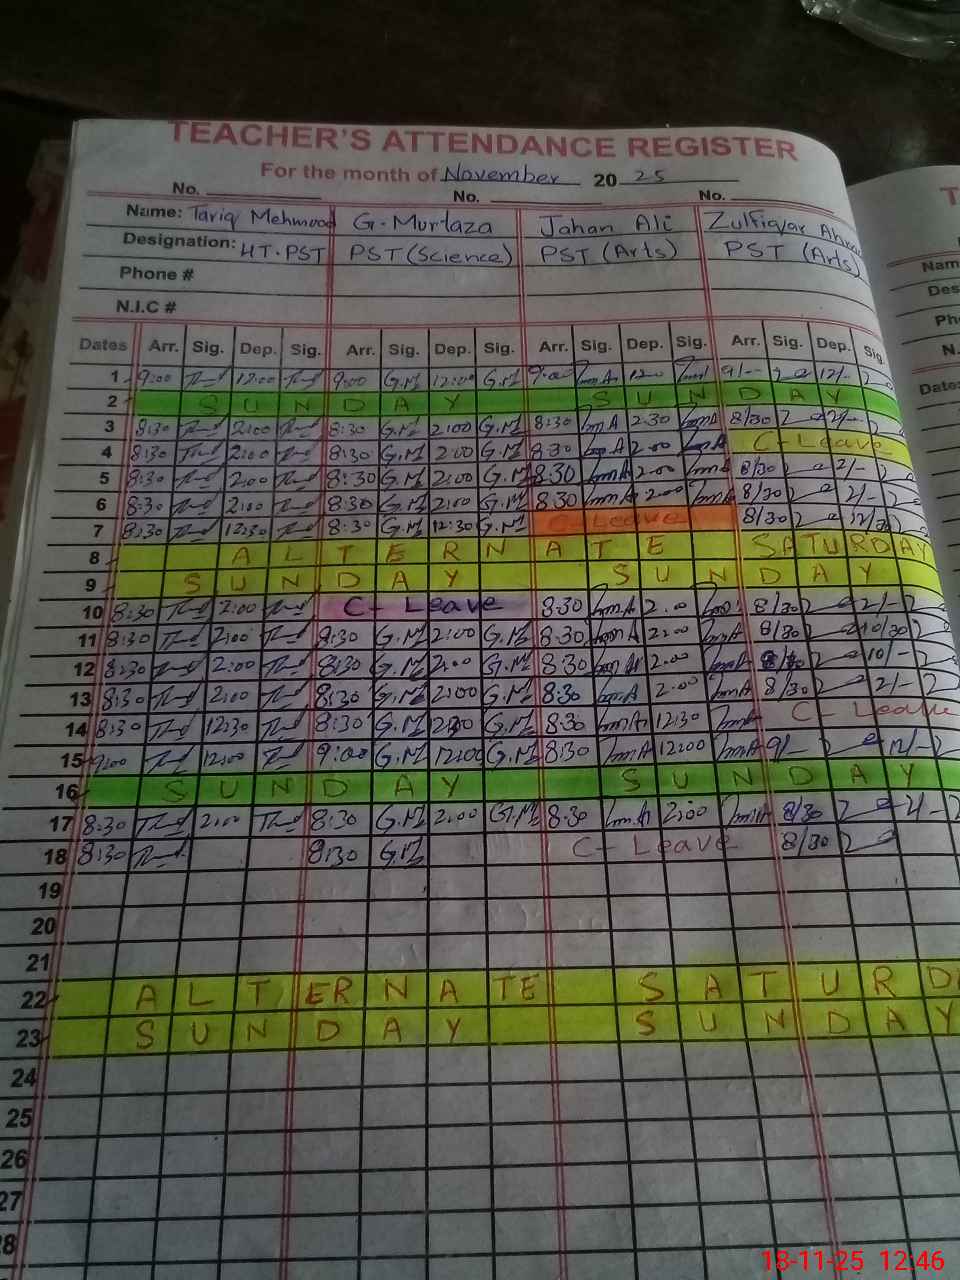 TEACHER'S ATTENDANCE REGISTER
For the month of November 2025
No. No. No.
Name: Tariq Mehmood G. Murtaza Jahan Ali Zulfiqar
Designation: HT-PST PST (Science) PST (Arts) PST (Arts)
Phone #
N.I.C #
Dates Arr. Sig. Dep. Sig. Arr. Sig. Dep. Sig. Arr. Sig. Dep. Sig. Arr. Sig. Dep. Sig.
1 9:00 12:00 9:00 G.M 12:00 G.M 9:00 1200 9/-- 12/-
2 SUNDAY SUNDAY
3 8:30 2:00 8:30 G.M 2:00 G.M 8:30 2.30 8/30 2/-
4 8:30 2:00 8:30 G.M 2:00 G.M 8:30 2.00 C-Leave
5 8:30 2:00 8:30 G.M 2:00 G.M 8.30 2.00 8/30 2/-
6 8:30 2:00 8:30 G.M 2:00 G.M 8.30 2.00 8/30 2/-
7 8:30 12:30 8:30 G.M 12:30 G.M C-Leave 8/30 12/30
8 ALTERNATE SATURDAY
9 SUNDAY SUNDAY
10 8:30 2:00 C-Leave 8:30 2.00 8/30 2/-
11 8:30 2:00 8:30 G.M 2:00 G.M 8:30 2:00 8/30
12 8:30 2:00 8:30 G.M 2:00 G.M 8:30 2.00
13 8:30 2:00 8:30 G.M 2:00 G.M 8:30 2.00 8/30 2/-
14 8:30 12:30 8:30 G.M G.M 8:30 12:30 C-Leave
15 9:00 12:00 9:00 G.M 12:00 G.M 8:30 12:00 9/- 12/-
16 SUNDAY SUNDAY
17 8:30 2:00 8:30 G.M 2:00 G.M 8:30 2:00 8/30
18 8:30 8:30 G.M C-Leave 8/30
19
20
21
22 ALTERNATE SATURD
23 SUNDAY SUNDAY
24
25
26
27
28
Nam
Des
Ph
N.
Date
18-11-25 12:46